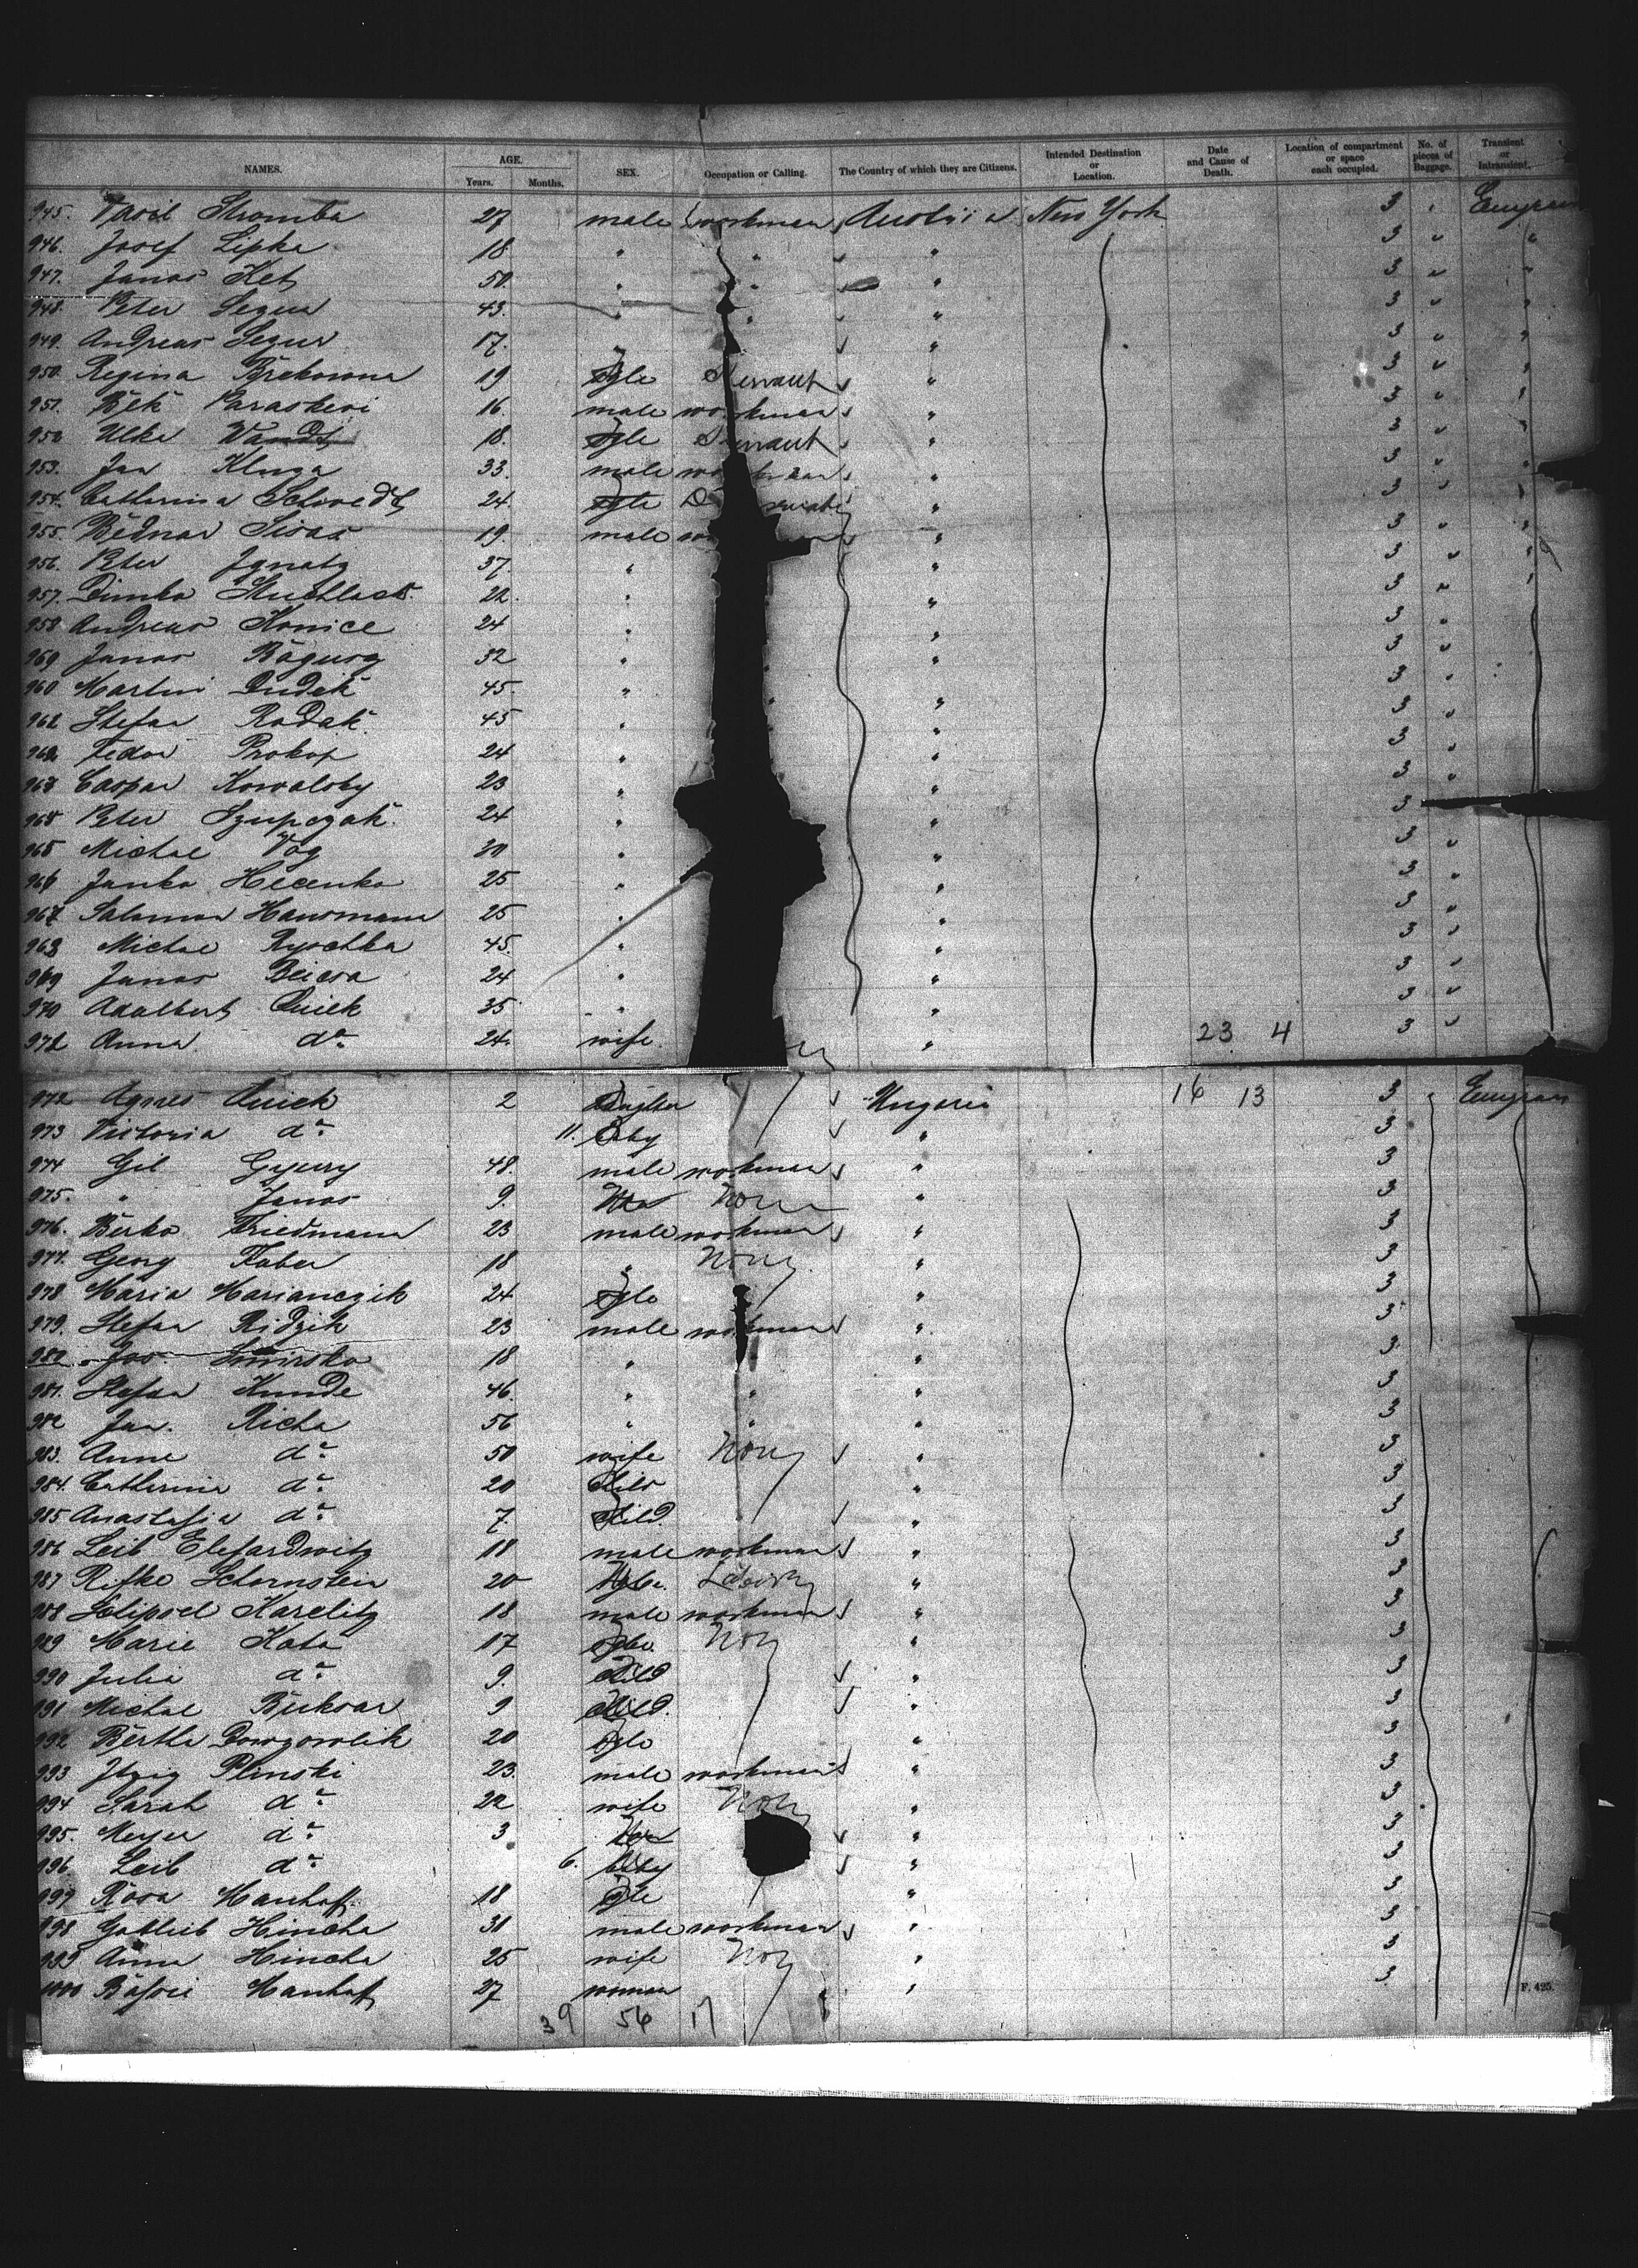 NAMES. AGE. Years. Months. SEX. Occupation or Calling. The Country of which they are Citizens. Intended Destination or Location. Date and Cause of Death. Location of compartment or space each occupied. No. of pieces of Baggage. Transient or Intransient.
945. Vasil Stromba 27 male workman Austria New York 3
946. Josef Lipka 18 " " " 3 "
947. Janos Ket 50 " " " 3 "
948. Peter 43. " " " 3 "
949. Andreas 17. " " 3 "
950. Regina 19 Sgle Servant " 3 "
951. Bek Paraskevi 16. male workman " 3 "
952 Ulke Wandt 18. Sgle Servant " 3 "
953. Jan Kluza 33. male workman " 3 "
954. Catherina Schwedt 24. Sgle " 3 "
955. Bednar Sisas 19. male " 3 "
956. Peter Ignatz 37. " " 3 "
957. Dimba 22. " " 3 "
958 Andreas Konice 24 " " 3 "
969 Janos 32 " " 3 "
960 Martin Dudak 45. " " 3 "
962 Stefan Radak. 45 " " 3 "
962 Fedor Prokop 24 " " 3 "
963 Caspar Kowalsky 23 " " 3 "
965 Peter Szupczak. 24 " " 3
965 Michal Vog 30 " " 3 "
966 Janko Hecenko 25 " " 3 "
967 Salamon Hausmann 25 " " 3 "
968 Michal Ryschka 45. " " 3 "
969 Janos 24 " " 3 "
970 Adalbert Quick 35 " " 3 "
972 Anna do. 24. wife. " 23 4 3 "
972 Agnes Quick 2 Ungaria 16 13 3
973 Victoria do. 11. Baby " 3
974 Gil Gyury 48. male workman " 3
975. " Janos 9. None " 3
976. Berko Friedmann 23 male workman " 3
977. Georg Faber 18 " None " 3
978 Maria Marianczik 24 Sgle " 3
979. Stefan Ridzik 23 male workman " 3
980. Jos. Smirsko 18 " " 3
981. Stefan Kunde 46. " " " 3
982 Jan. Richa 56 " " " 3
983. Anne do. 50 wife None " 3
984. Catherine do. 20 Child " 3
985 Anastasia do. 7. Child. " 3
986 Leib 18 male workman " 3
987 Rifke Schornstein 20 " 3
988 Karelitz 18 male workman " 3
989 Marie Kata 17 Sgle None " 3
990 Julia do. 9. Child " 3
991 Michal 9 Child. " 3
992 Bertha 20 Sgle " 3
993 Itzig Plinski 23. male workman " 3
994 Sarah do. 22 wife None " 3
995. Meyer do. 3 " 3
996. Leib do. 6. baby " 3
997 Rosa Manhaft. 18 Sgle " 3
998 Gottlieb Hincha 31 male workman " 3
999 Anna Hincha 25 wife None " 3
1000 Manhaft 27 woman " 3
F. 425.
39 56 17